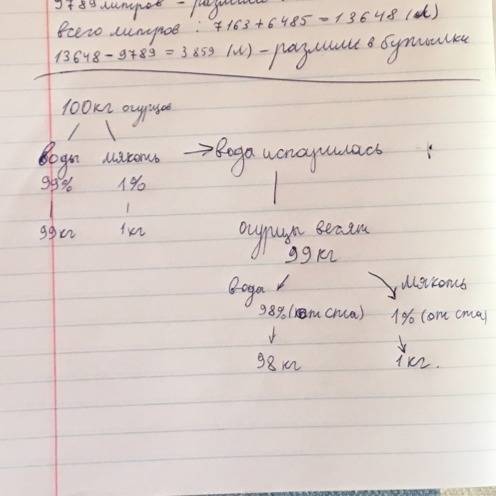 9789 литров -
всего литров : 7163 + 6485 = 13648 (л)
13648 - 9789 = 3859 (л) - разлили в бутылки
100кг огурцов
воды мякоть → вода испарилась
99% 1%
99кг 1кг
огурцы весят
99кг
вода мякоть
98% (от ста) 1% (от ста)
98кг 1кг.